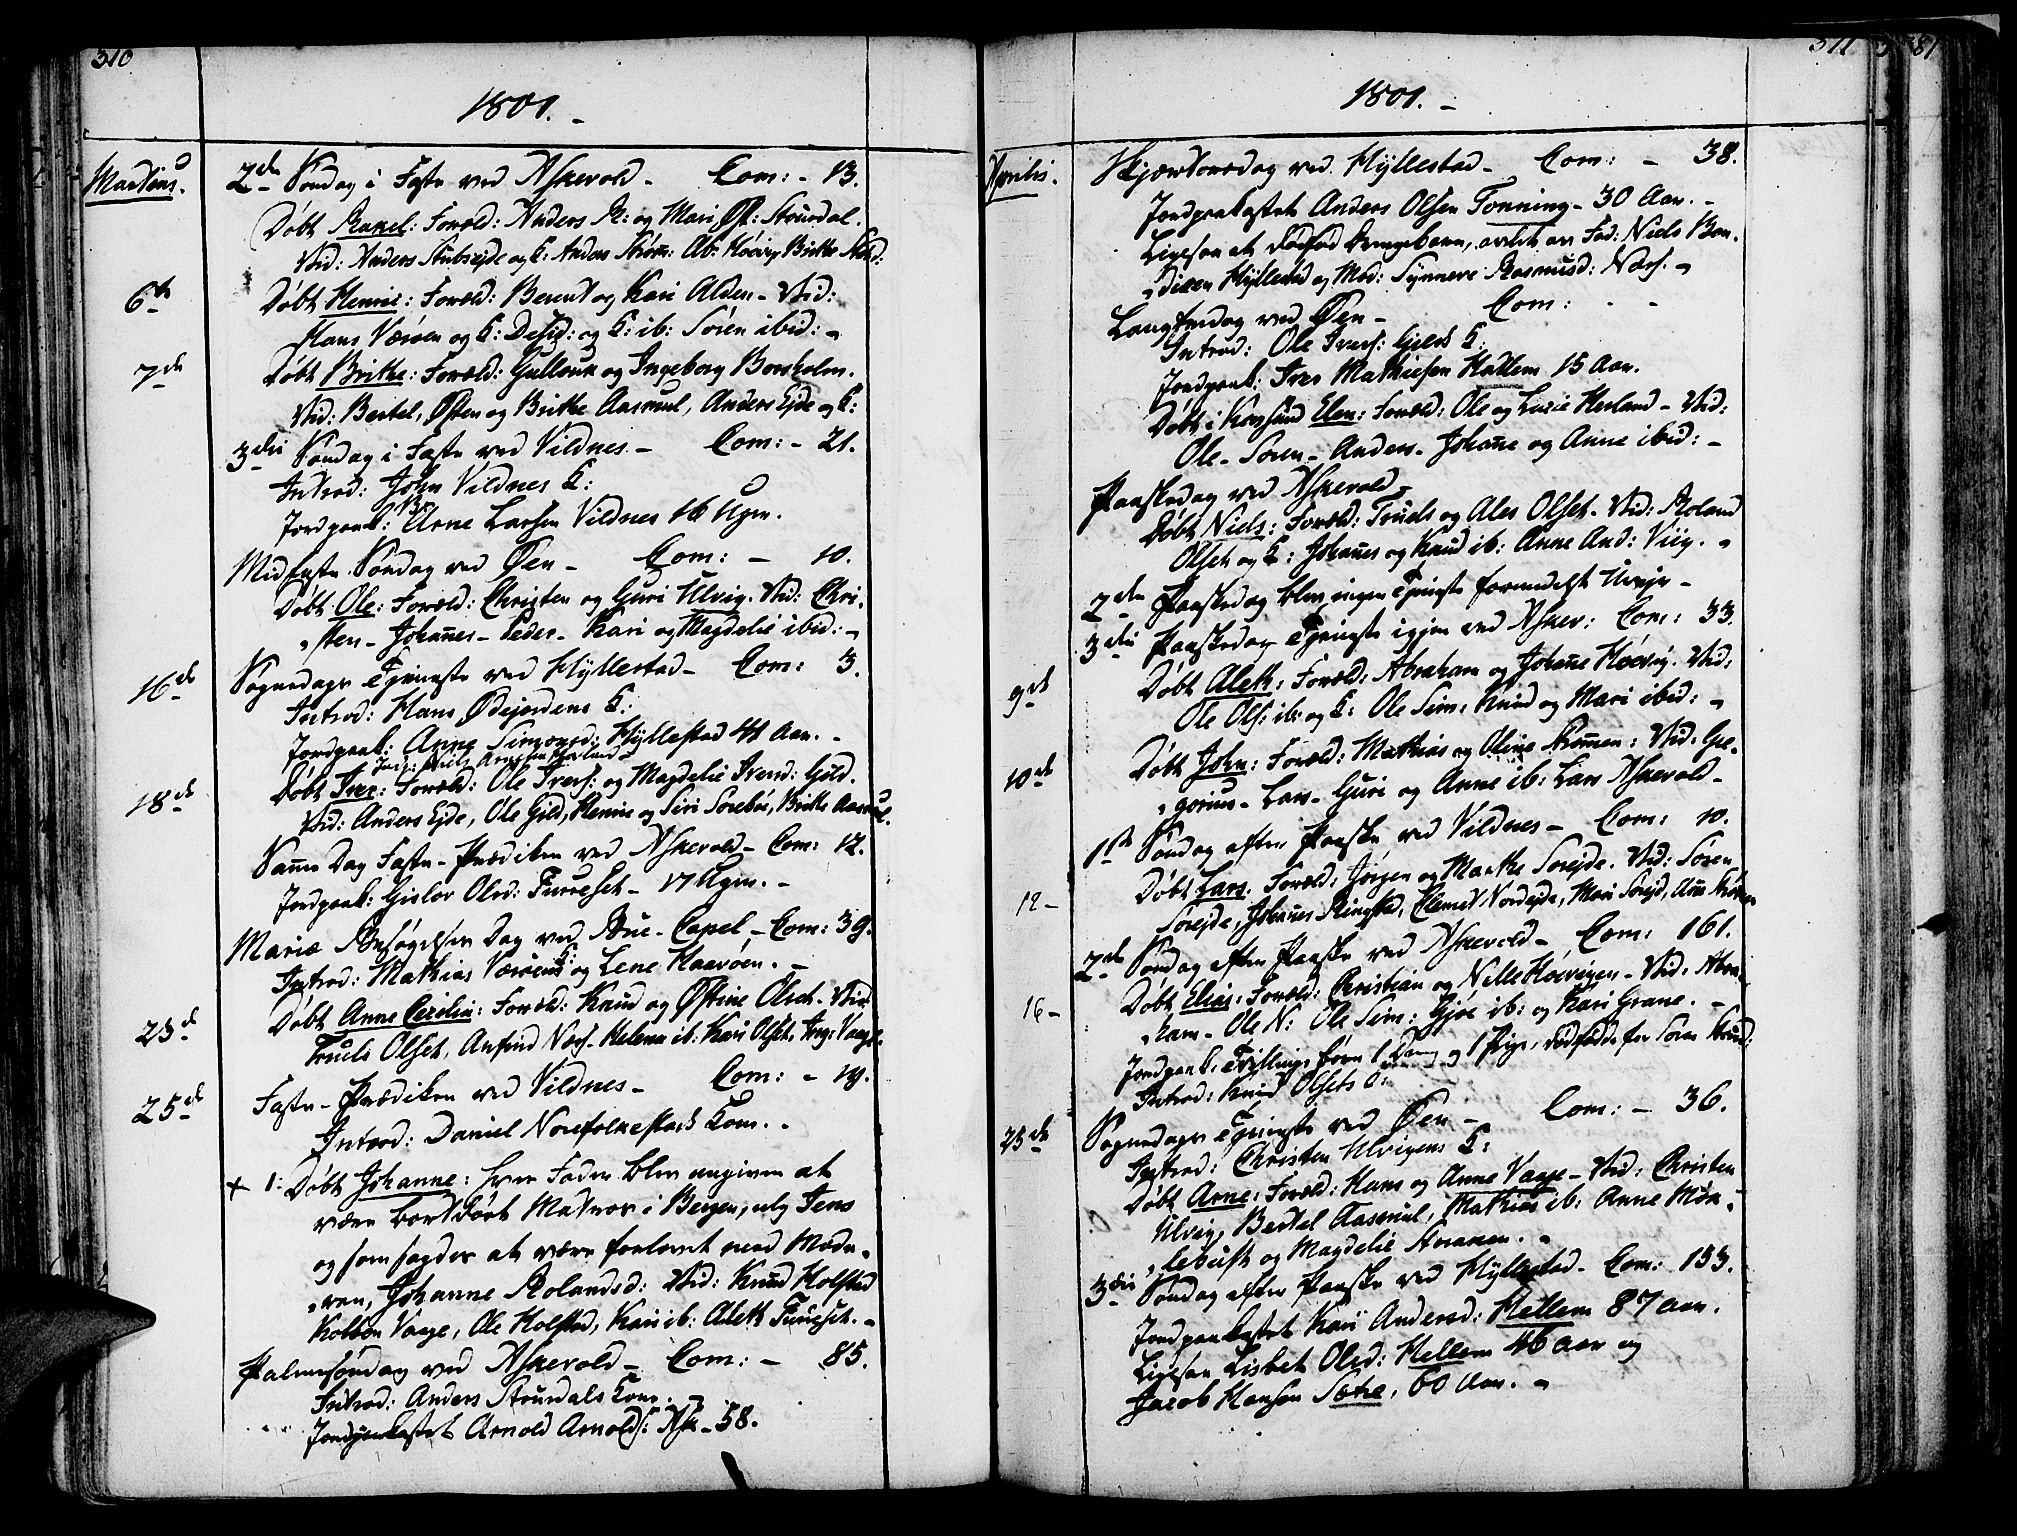 310
1801. -
Martius.
2den Søndag i Faste ved Askevold - Com: - 13.
Døbt Rakel: Foræld: Anders R: og Mari Øl: Stourdal.
Vid: Anders Stubsejde og K: Anders Strøm: Ab: Høevig Brithe
6te
Døbt Henric: Foræld: Berent og Kari Alden - Vid:
Hans Værøen og K: Desid: og K: ib: Sören ibid: -
7de
Døbt Brithe: Foræld: Gullouk og Ingeborg Borsholm.
Vid: Bertel, Østen og Brithe Aasmul, Anders Ejde og K:
3die Søndag i Faste ved Vildnes - Com: - 21.
Introd: John Vildnes K:
Jordpaak: Arne Larsen Vildnes 16 Ugrn.
Midfaste Søndag ved Øen - Com: - 10.
Døbt Ole: Foræld: Christen og Guri Ulvig. Vid: Chri-
sten - Johanes - Peder - Kari og Magdelie ibid: -
16de
Søgnedags Tjeneste ved Hyllestad - Com: 3.
Introd: Hans Ødejordens K:
Jordpaak: Anne Simonsd: Hyllestad 41 Aar. -
18de
Døbt Iver: Foræld: Ole Ivers: og Magdelie Ivend: Gild.
Vid: Anders Ejde, Ole Gild, Henric og Siri Sorebøe, Brithe Aasmul.
Same Dag Faste-Prædiken ved Askevold - Com: 12.
Jordpaak: Gislov Olsd: Furreset - 17 Ugrn. -
Mariæ Besøgelses Dag ved Bue-Capel - Com: 39.
Introd: Mathias Værøens K: og Lene Haarøen. -
23de
Døbt Anne Cecilia: Foræld: Knud og Østine Olset. Vid:
Truels Olset, Anfind Næss - Helena ib: Kari Olset. Ing: Vaage
25de
Faste-Prædiken ved Vildnes - Com: - 19.
Introd: Daniel Norefolkestads Kone. -
+ 1. Døbt Johanne: hvis Fader blev angiven at
være bortdöet Matros i Bergen, velg Jens
og som sagdes at være forlovet med Mode-
ren, Johanne Rolandsd: Vid: Knud Holstad
Kolben Vaage, Ole Holstad, Kari ib: Aleth Fureset. -
Palmesøndag ved Askevold - Com: - 85.
Introd: Anders Stourdals Kone. -
Jordpaakastet Arnold Arnolds: Ask - 58.
311
381
1801. -
Aprilis.
Skjærtorsdag ved Hyllestad - Com: - 38.
Jordpaakastet Anders Olsen Tonning - 30 Aar. -
Ligesaa et dødfød Drengebarn, avlet av Fad: Niels Ben-
dixen Hyllestad og Mod: Synneve Rasmusd: Næss. -
Langfredag ved Øen - Com: - -
Introd: Ole Ivers: Gilds K:
Jordpaak: Iver Mathiesen Hatlem 15 Aar.
Døbt i Korssund Elen: Foræld: Ole og Lucie Herland - Vid:
Ole - Soren - Anders - Johane og Anne ibid: -
Paaskedag ved Askevold -
Døbt Niels: Foræld: Truels og Ales Olset - Vid: Roland
Olset og K: Johanes og Knud ib: Anne And: Viig. -
2den Paaskedag blev ingen Tjeneste formedelst Uvejr -
3die Paaskedag Tjeneste igjen ved Askev: Com: 33.
9de
Døbt Aleth: Foræld: Abraham og Johane Høevig. Vid:
Ole Ols: ib: og K: Ole Sim: Knud og Mari ibid: -
10de
Døbt John: Foræld: Mathias og Oline Strømen: Vid: Gre-
gorius - Lars - Guri og Anne ib: Lars Askevold -
1ste Søndag efter Paaske ved Vildnes - Com: 10.
12 -
Døbt Lars. Foræld: Jörgen og Marthe Sorejde. Vid: Sören
Sorejde, Johanes Ringstad, Clemet Nordejde, Mari Sorejd, Ane
2den Søndag efter Paaske ved Askevold - Com: 161.
16 -
Døbt Elias: Foræld: Christian og Nille Høevigen - Vid: Abra-
ham - Ole N: Ole Sim: Gjøe ib: og Kari Grane. -
Jordpaak: Tvillinge börn 1 Dreng og 1 Pige, dødfødde for Sören
Introd: Knud Olsets K:
25de
Søgnedags Tjeneste ved Øen - Com: - 36.
Introd: Christen Ulvigens K:
Døbt Arne: Foræld: Hans og Anne Vaage - Vid: Christen
Ulvig, Bertel Aasmul, Mathias ib: Anne Møk-
lebust og Magdelie
3die Søndag efter Paaske ved Hyllestad - Com: 153.
Jordpaakastet Kari Andersd: Hellem 87 Aar.
Ligesaa Lisbet Olsd: Hellem 46 Aar og
Jacob Hansen Sætre, 60 Aar. -